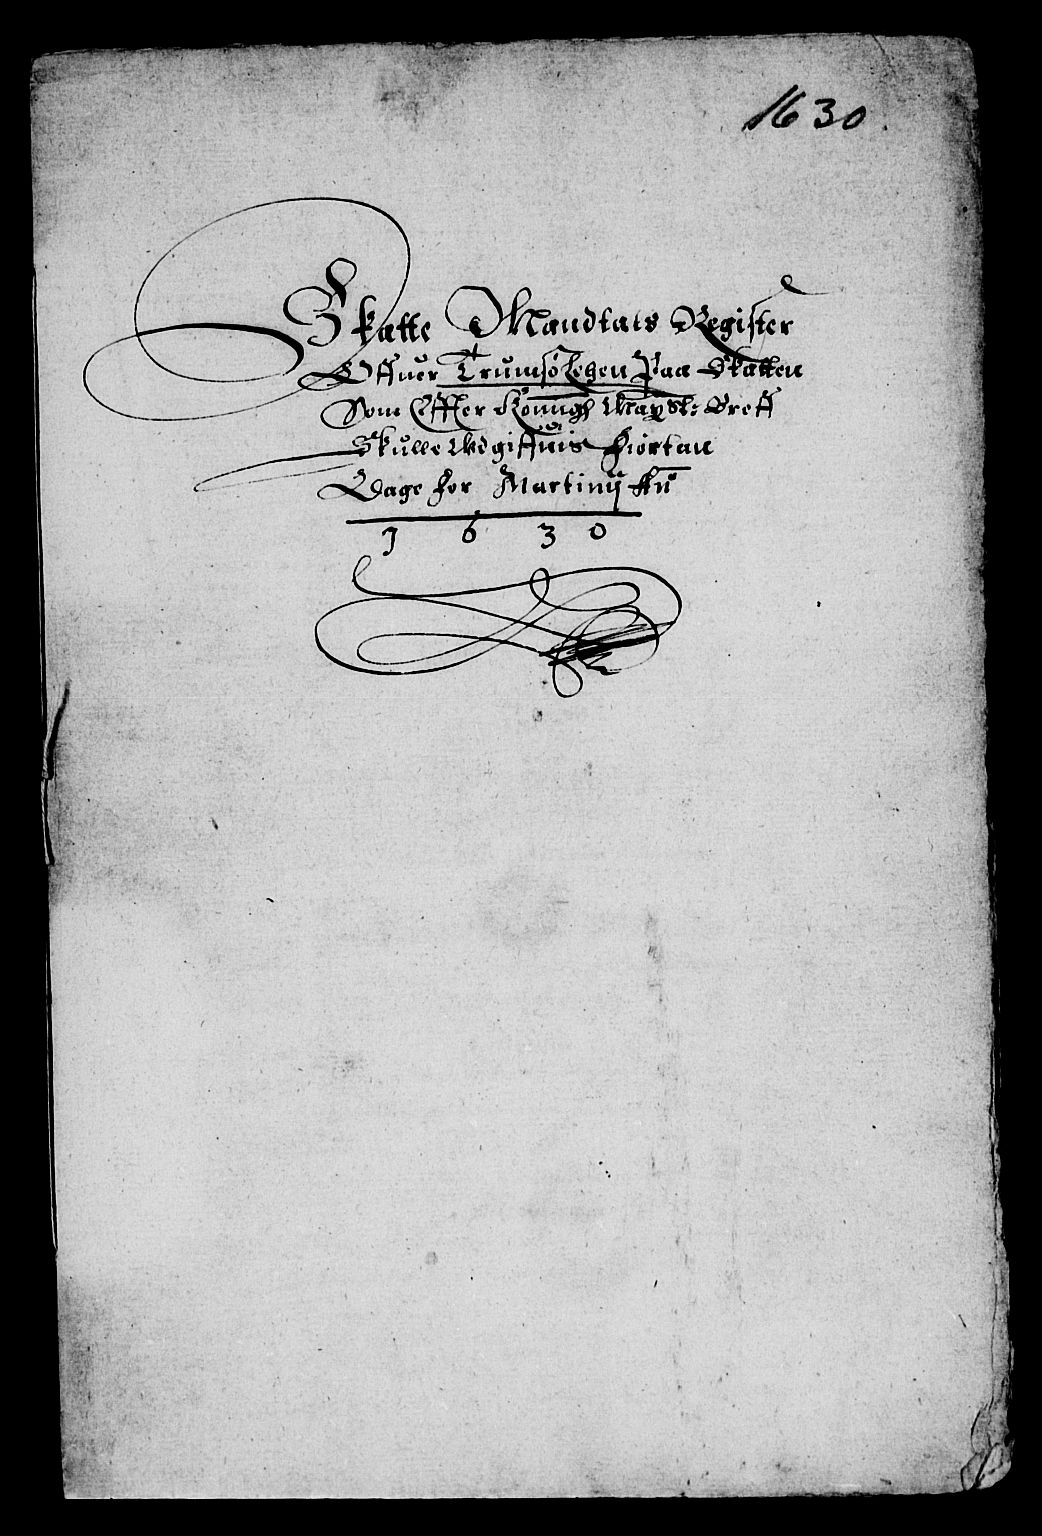 1630.
Skatte Mandtals Register
Offuer Trumsø Lehen Paa Skatten
Som Effter Konnigh Mayst: Breff
Skulle Udgiffuis Fiortan
Dage for Martinij Añ
1630